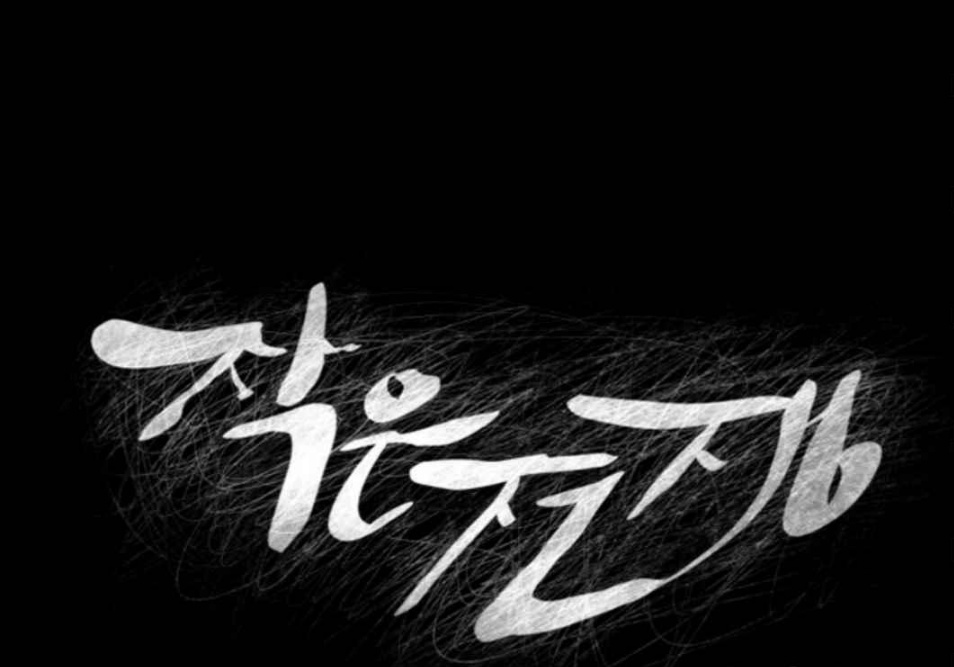 작은 전쟁